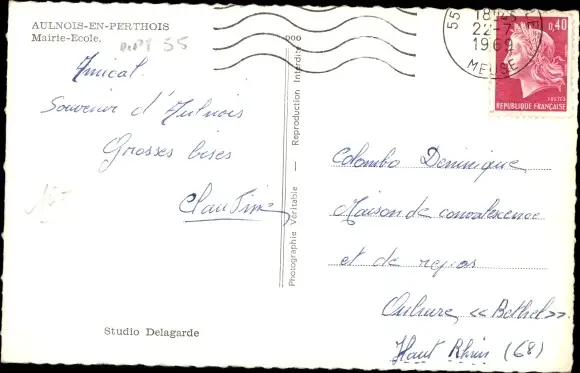 AULNOIS-EN-PERTHOIS
Mairie-Ecole.
Dept 55
Amical
Souvenir d'Aulnois
Grosses bises
Photographie Véritable — Reproduction Interdite
Studio Delagarde
55
18H
22-7
1969
MEUSE
0,40
REPUBLIQUE FRANÇAISE
Colombo Dominique
Maison de convalescence
et de repos
"Bethel".
Haut Rhin (68)